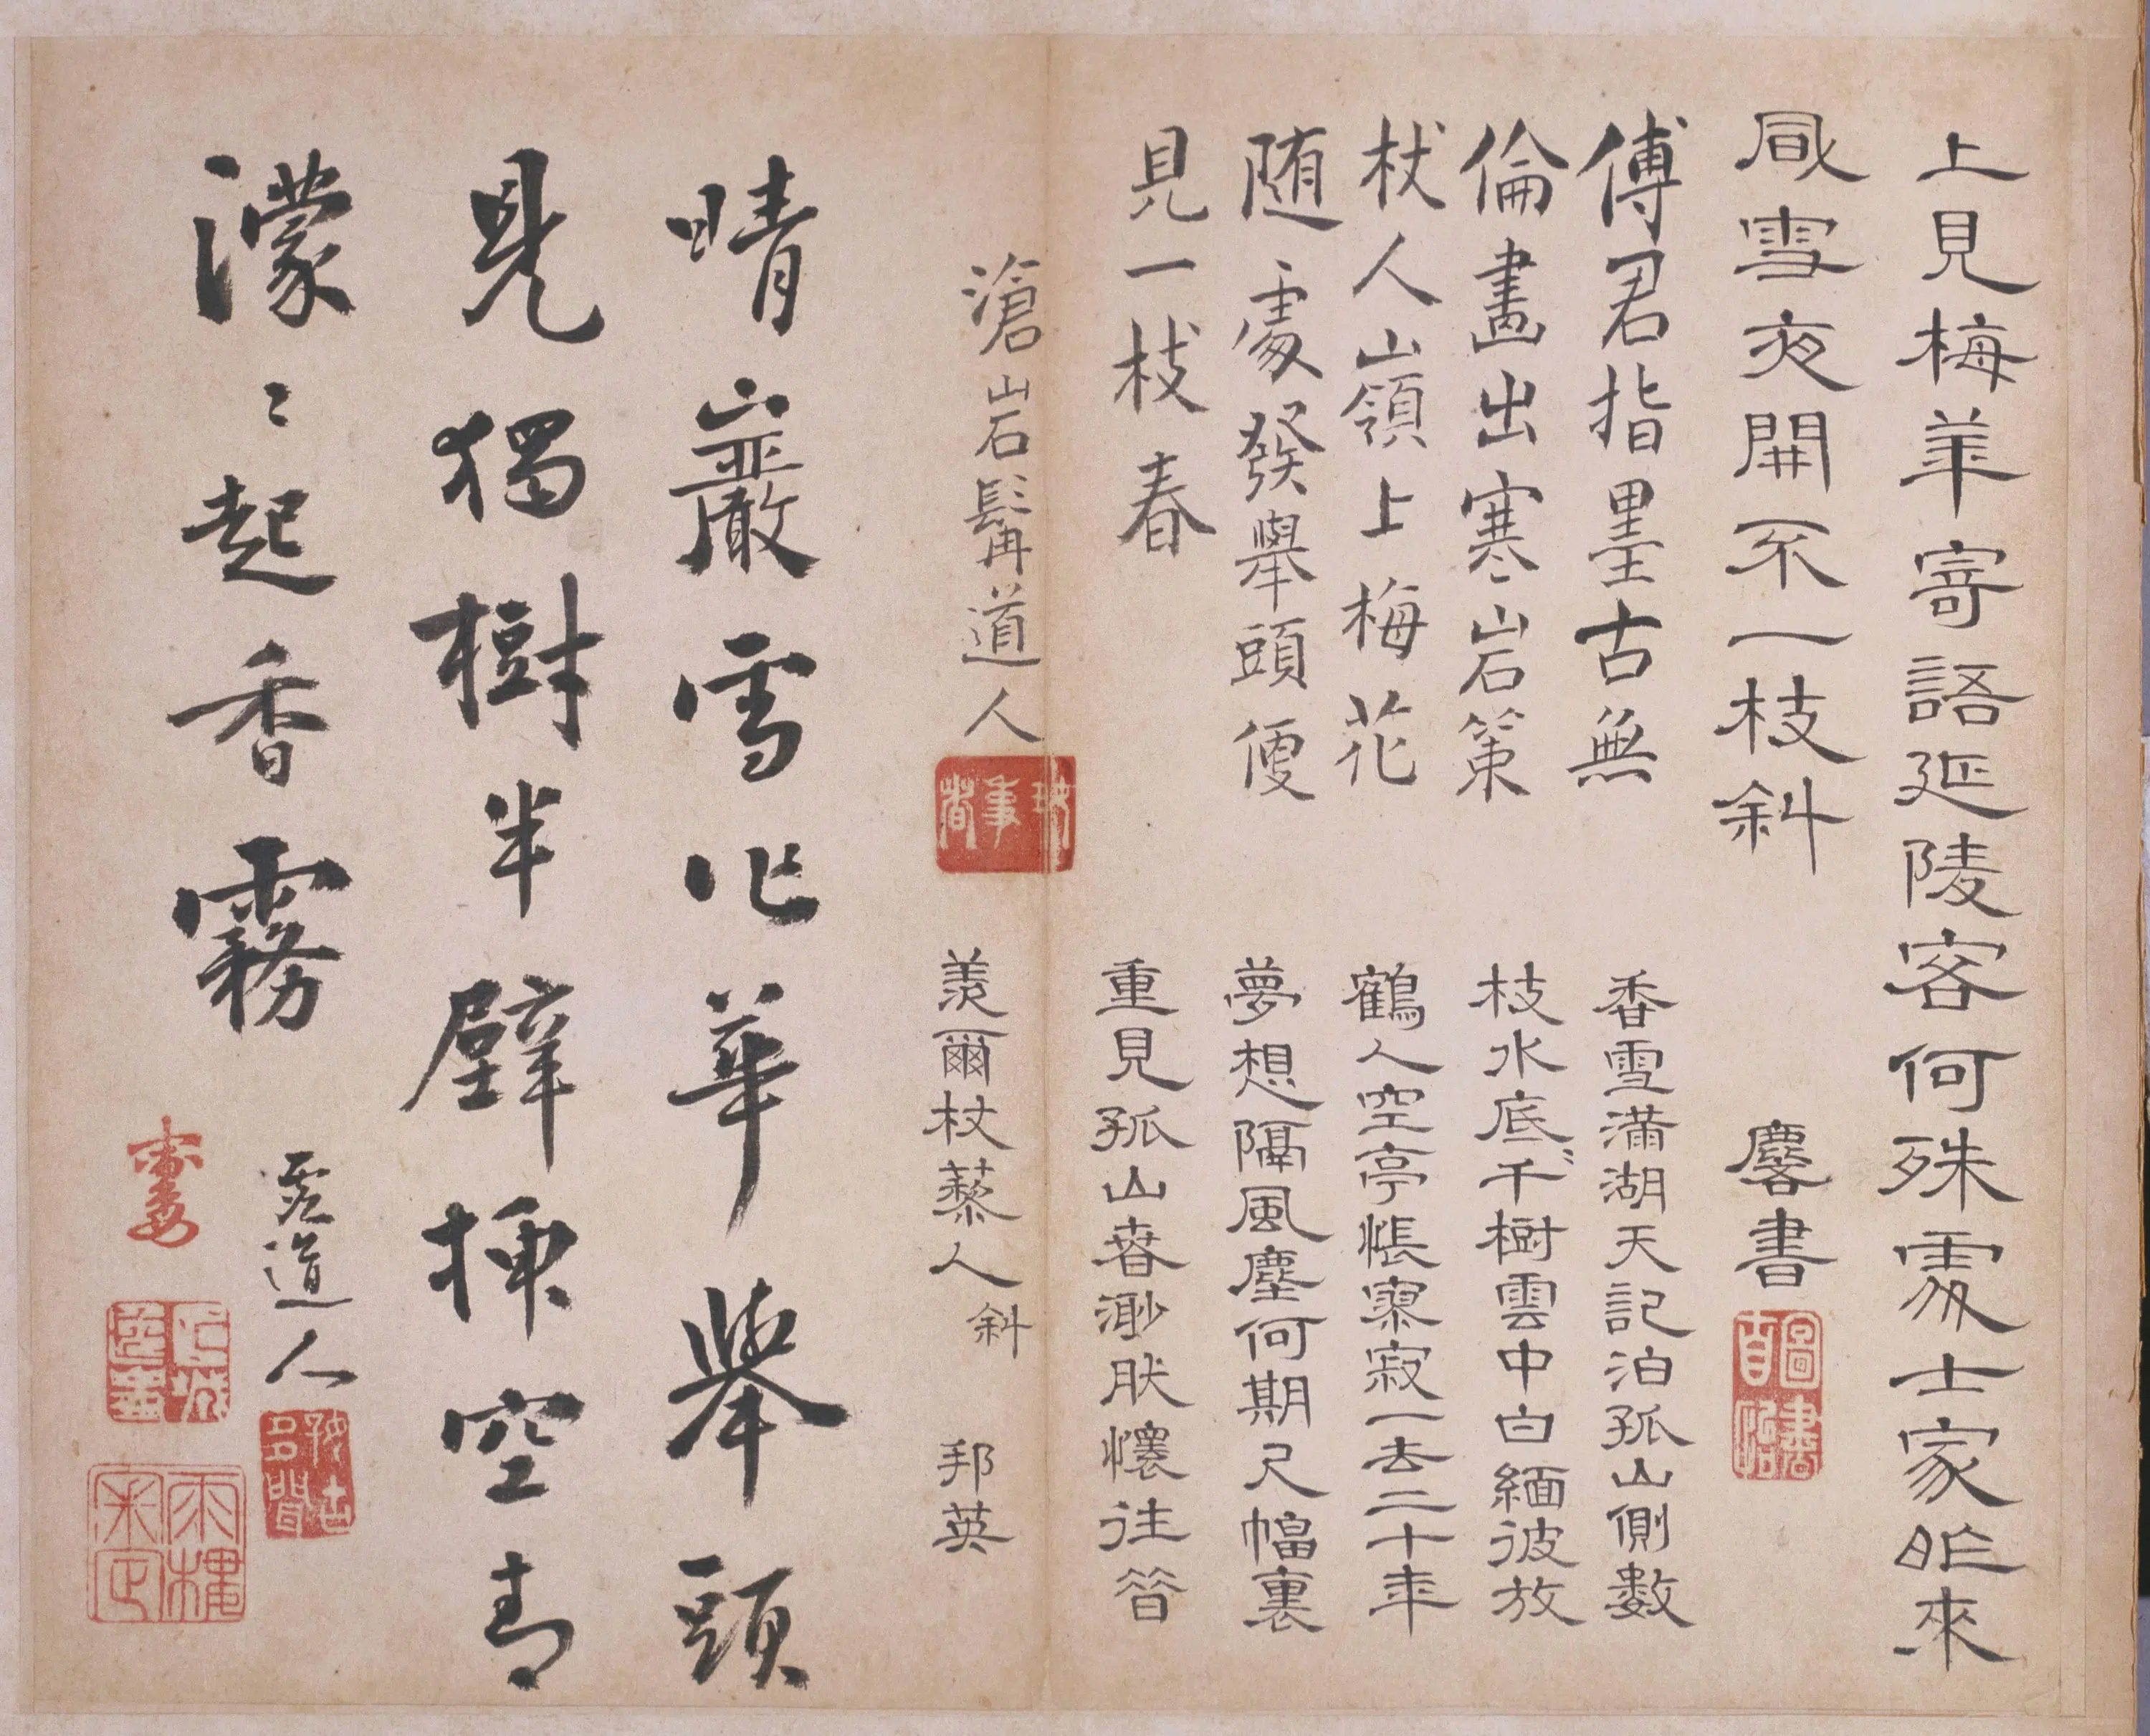 上見梅華寄語延陵客何殊處士家昨來
風雪夜開不一枝斜
馨書
傅君指墨古無
倫畫出寒岩策
杖人山嶺上梅花
随處發舉頭便
見一枝春
滄岩髯道人
香雪滿湖天記泊孤山側數
枝水底〻千樹雲中白緬彼放
鶴人空亭悵寥寂一去二十年
夢想隔風塵何期尺幅裏
重見孤山春渺然懷往昔
羨爾杖藜人斜
邦英
晴巖雪作華舉頭
見獨樹半壁揀空青
濛〻起香霧
雲道人